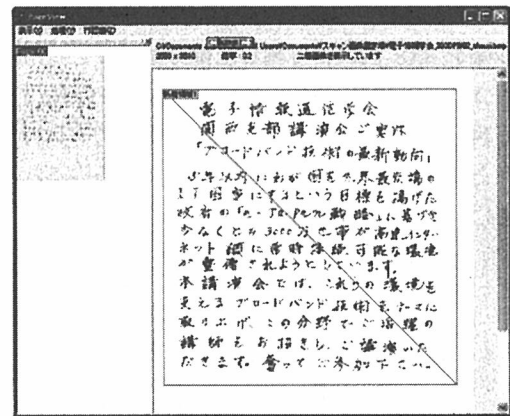 PageView
表示(V) 処理(P)
電子情報通信学会
関西支部講演会ご案内
「ブロードバンド技術の最新動向」
5年以内にわが国を世界最先端の
IT国家にするという目標を掲げた
政府の「e-Japan戦略」に基づき
少なくとも3000万世帯が高速インター
ネット網に常時接続可能な環境
が整備されようとしています。
本講演会では、これらの環境を
支えるブロードバンド技術をテーマに
取り上げ、この分野でご活躍の
講師をお招きし、ご講演いた
だきます。奮ってご参加下さい。